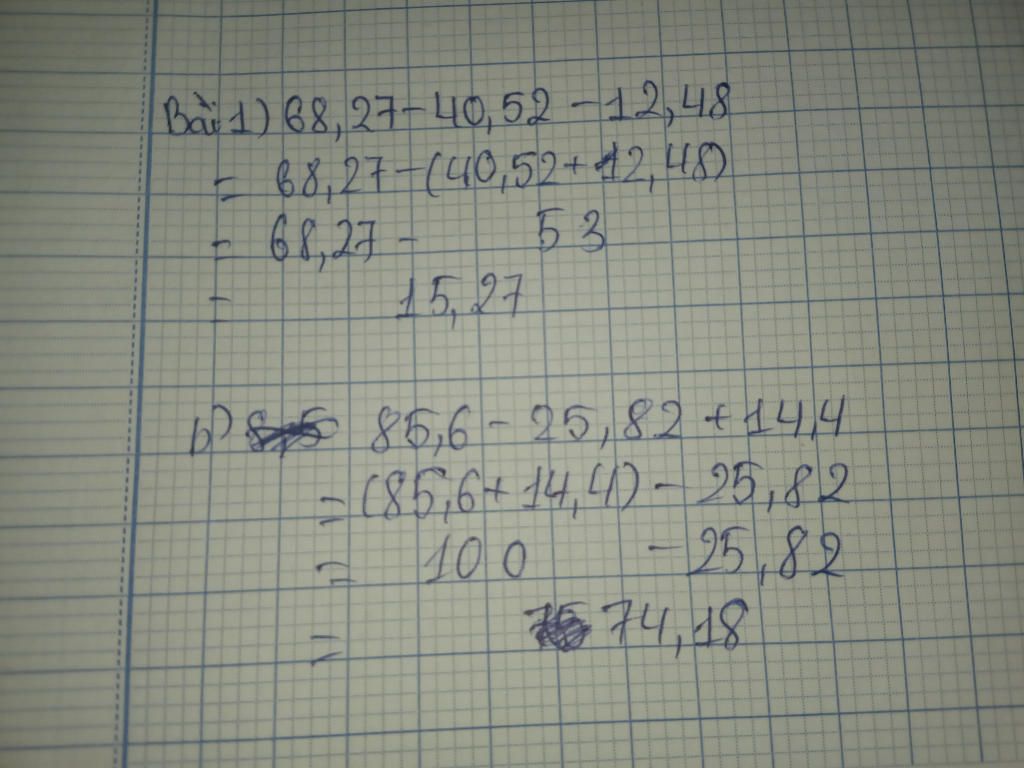 Bài 1) 68,27 - 40,52 - 12,48
= 68,27 - (40,52 + 12,48)
= 68,27 - 53
= 15,27
b) 85,6 - 25,82 + 14,4
= (85,6 + 14,4) - 25,82
= 100 - 25,82
= 74,18